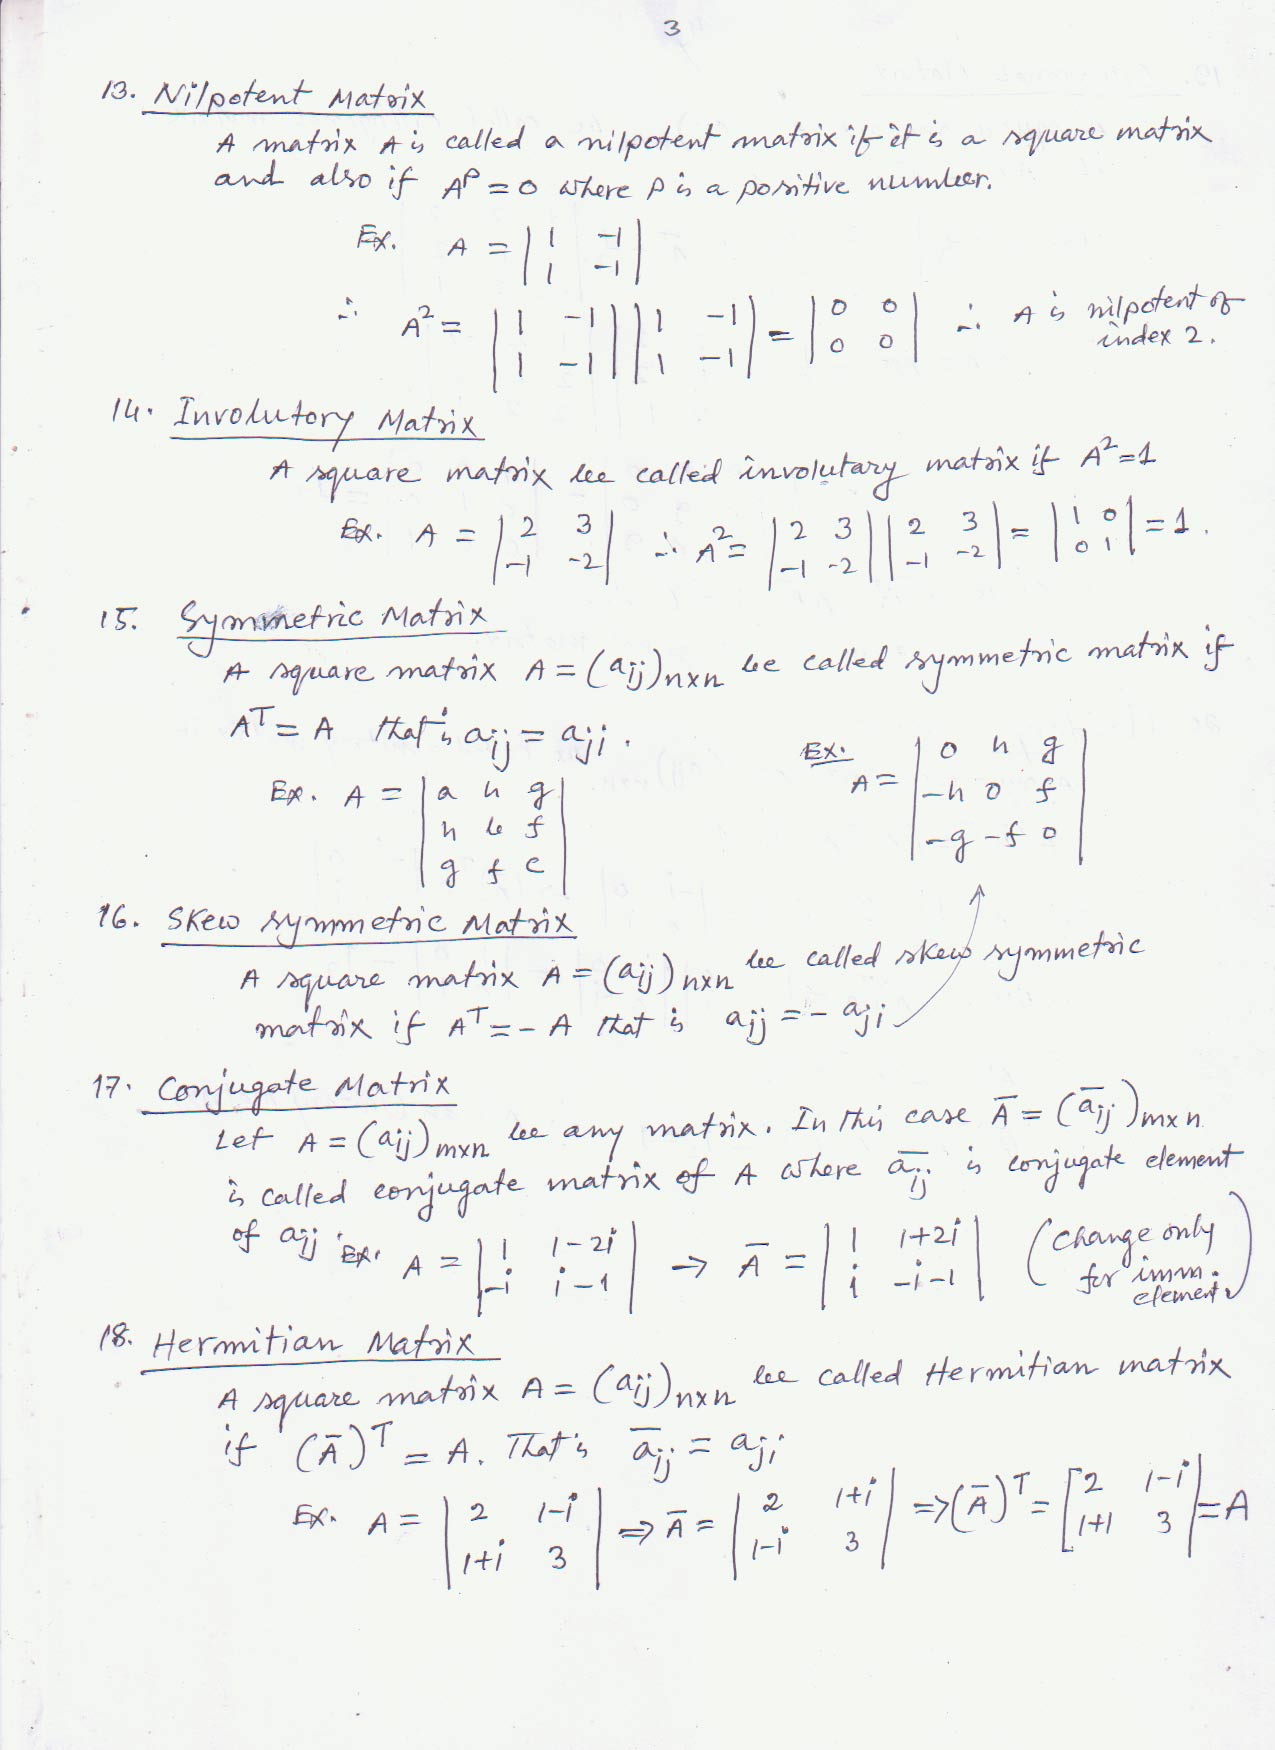 3
13. Nilpotent Matrix
A matrix A is called a nilpotent matrix if it is a square matrix
and also if A^P = 0 where P is a positive number.
Ex. A = | 1 -1 |
| 1 -1 |
∴ A² = | 1 -1 | | 1 -1 | = | 0 0 | ∴ A is nilpotent of
| 1 -1 | | 1 -1 | | 0 0 | index 2.
14. Involutory Matrix
A square matrix be called involutary matrix if A² = 1
Ex. A = | 2 3 | ∴ A² = | 2 3 | | 2 3 | = | 1 0 | = 1.
| -1 -2 | | -1 -2 | | -1 -2 | | 0 1 |
15. Symmetric Matrix
A square matrix A = (aij)n×n be called symmetric matrix if
A^T = A that is aij = aji.
Ex. A = | a h g |
| h b f |
| g f c |
Ex. A = | 0 h g |
| -h 0 f |
| -g -f 0 |
16. Skew symmetric Matrix
A square matrix A = (aij)n×n be called skew symmetric
matrix if A^T = - A that is aij = - aji
17. Conjugate Matrix
Let A = (aij)m×n be any matrix. In this case A̅ = (a̅ij)m×n
is called conjugate matrix of A where a̅ij is conjugate element
of aij. Ex. A = | 1 1-2i | → A̅ = | 1 1+2i | (Change only
| -i i-1 | | i -i-1 | for imm.
element.)
18. Hermitian Matrix
A square matrix A = (aij)n×n be called Hermitian matrix
if (A̅)^T = A. That is a̅ij = aji
Ex. A = | 2 1-i | ⇒ A̅ = | 2 1+i | ⇒ (A̅)^T = [ 2 1-i | = A
| 1+i 3 | | 1-i 3 | [ 1+1 3 |